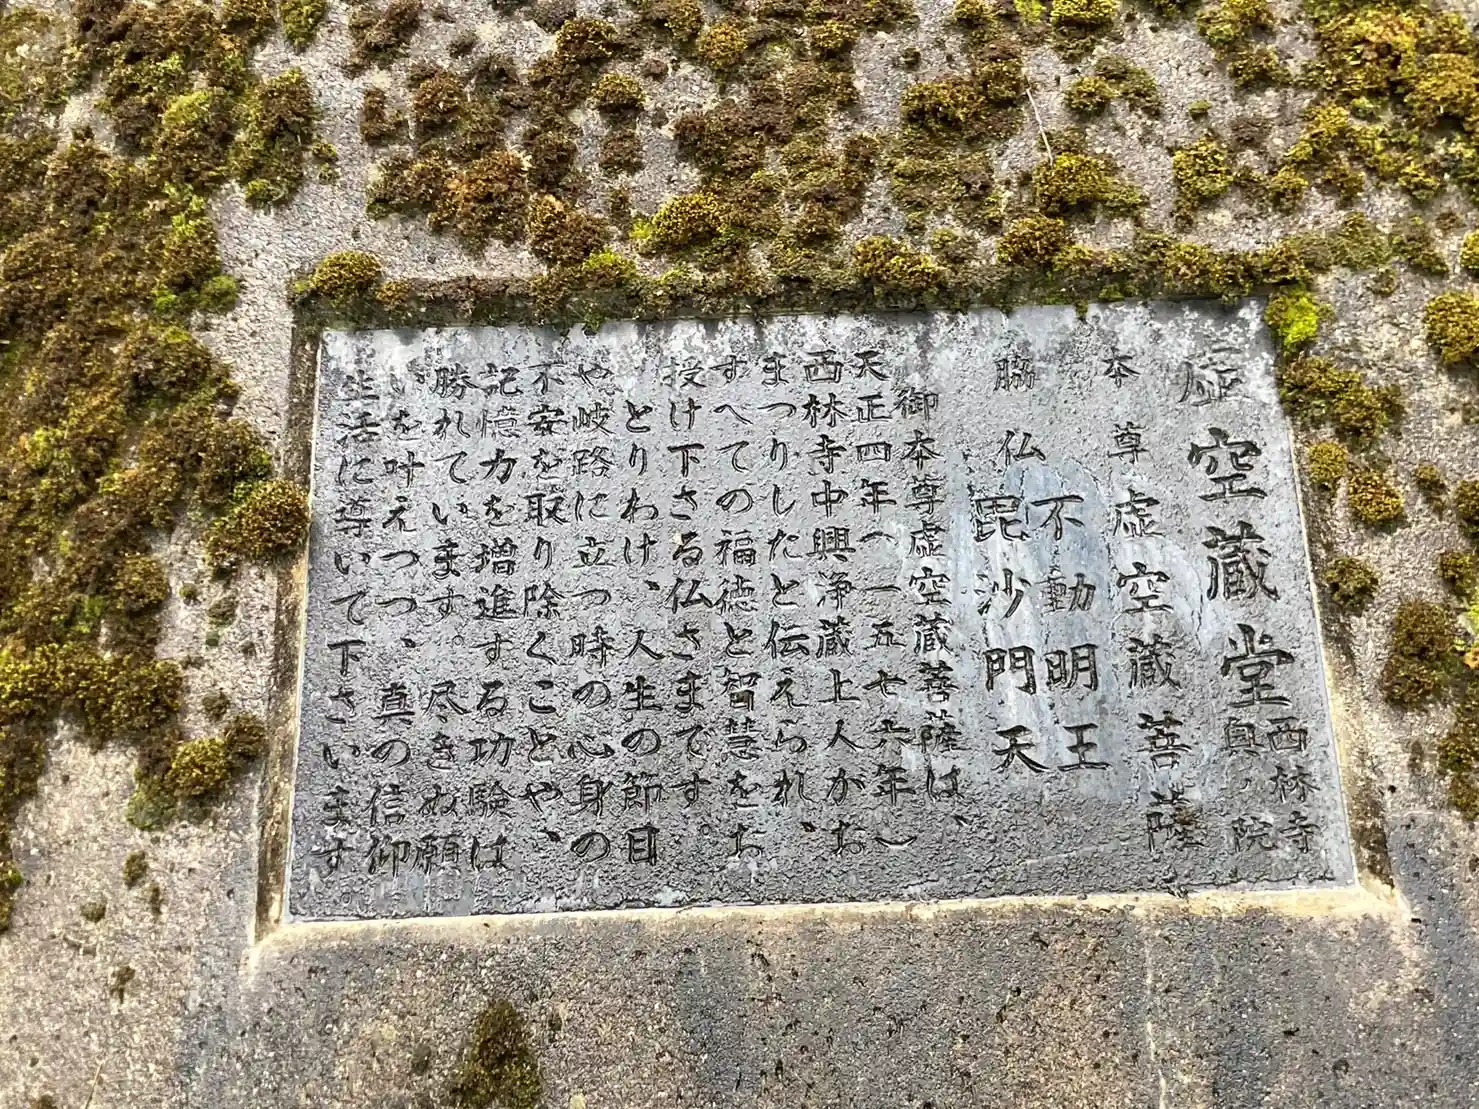 虚空蔵堂
西林寺
奥ノ院
本尊 虚空蔵菩薩
脇仏
不動明王
毘沙門天
御本尊虚空蔵菩薩は、
天正四年(一五七六年)
西林寺中興浄蔵上人かお
まつりしたと伝えられ、
すべての福徳と智慧をお
授け下さる仏さまです。
とりわけ、人生の節目
や岐路に立つ時の心身の
不安を取り除くことや、
記憶力を増進する功験は
勝れています。尽きぬ願
いを叶えつつ、真の信仰
生活に導いて下さいます